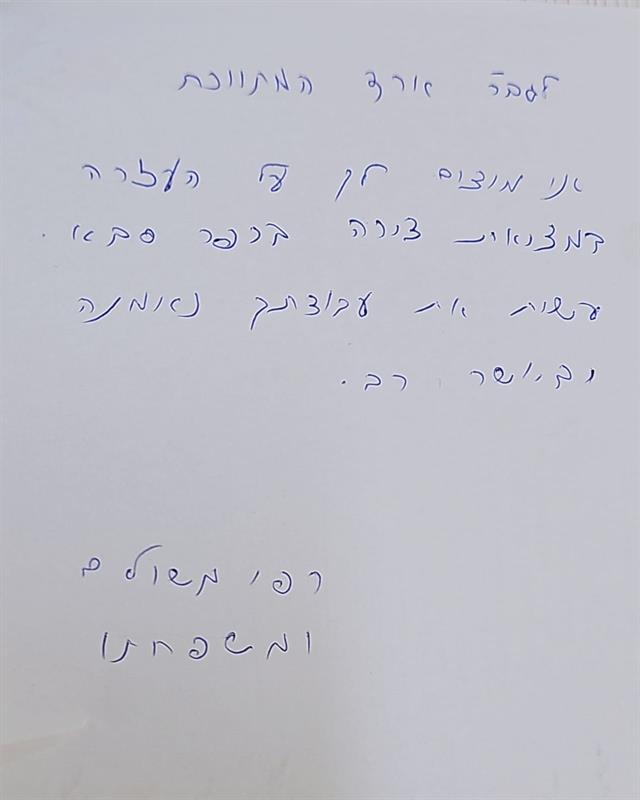 המתווכת
אני מודים לך על העזרה
במציאת דירה בכפר סבא.
עשית את עבודתך נאמנה
וביושר רב.
רפי משולם
ומשפחתו